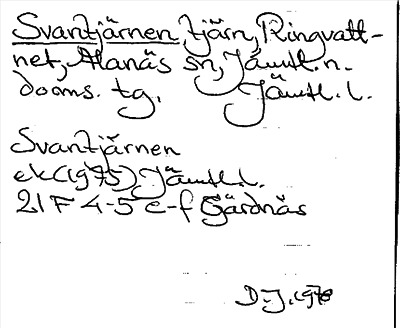 Svantjärnen, tjärn, Ringvatt-
net, Alanäs sn, Jämtl. n.
doms. tg. Jämtl. l.
Svantjärnen
ek (1975) Jämtl. l.
21 F 4-5 e-f Gärdnäs
D.J. 1978